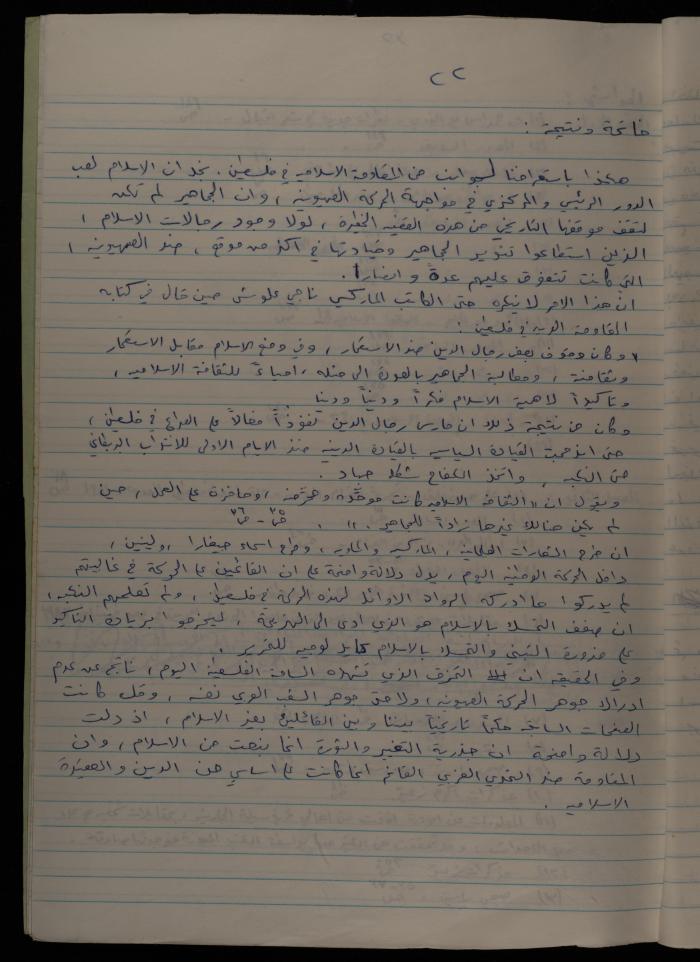 ٢٢
خاتمة ونتيجة :
هكذا باستعراضنا لجوانب من المقاومة الاسلامية في فلسطين. نجد ان الاسلام لعب
الدور الرئيسي والمركزي في مواجهة الحركة الصهيونية ، وان الجماهير لم تكن
لتقف موقفها التاريخي من هذه القضية الخطيرة ، لولا وجود رجالات الاسلام ،
الذين استطاعوا تنوير الجماهير وقيادتها في اكثر من موقع ، ضد الصهيونية ،
التي كانت تتفوق عليهم عدة و انصارا .
ان هذا الامر لا ينكره حتى الكاتب الماركسي ناجي علوش حين قال في كتابه
المقاومة العربية في فلسطين :
" وكان وقوف بعض رجال الدين ضد الاستعمار ، وفي وضع الاسلام مقابل الاستعمار
وثقافته ، ومطالبة الجماهير بالعودة الى مثله ، احياءً للثقافة الاسلامية ،
وتاكيداً لاهمية الاسلام فكراً وديناً ودنيا
وكان من نتيجة ذلك ان مارس رجال الدين نفوذاً فعالاً على الصراع في فلسطين ،
حتى اندمجت القيادة السياسية بالقيادة الدينية منذ الايام الاولى للانتداب البريطاني
حتى النكبة ، واتخذ الكفاح شكل جهاد .
ويقول ان "الثقافة الاسلامية كانت موحِّدة ومحرّضة ، وحافزة على العمل ، حين
لم يكن هنالك غيرها زاداً للجماهير . " . ص٣٥ - ص٣٦
ان طرح الشعارات العلمانية ، الماركسية والمادية ، وطرح اسماء جيفارا ، ولينين ،
داخل الحركة الوطنية اليوم ، يدل دلالة واضحة على ان القائمين على الحركة في غالبيتهم
لم يدركوا ما ادركه الرواد الاوائل لهذه الحركة في فلسطين ، ولم تعلمهم النكبة ،
ان ضعف التمسك بالاسلام هو الذي ادى الى الهزيمة ، ليخرجوا بزيادة التاكيد
على ضرورة التبني والتمسك بالاسلام كايدلوجية للتحرير .
وفي الحقيقة ان التمزق الذي تشهده الساحة الفلسطينية اليوم ، ناتج عن عدم
ادراك جوهر الحركة الصهيونية ، ولا حتى جوهر الشعب العربي نفسه ، وقد كانت
الصفحات السابقة حكماً تاريخياً بيننا وبين القائلين بغير الاسلام ، اذ دلت
دلالة واضحة ان جذرية التغيير والثورة انما ينبعث من الاسلام ، وان
المقاومة ضد التحدي الغربي القائم انما كانت على اساس من الدين والعقيدة
الاسلامية .